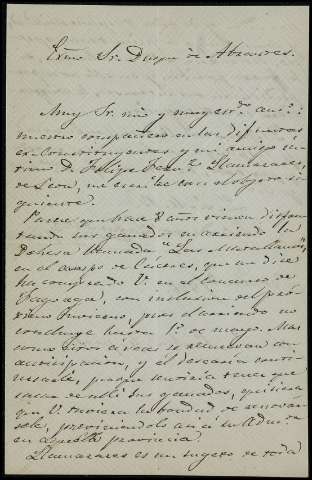 Exmo. Sr. Duque de Abrantes.
Muy Sr. mio y muy est.do am.o:
mi compañero en las difuntas
Constituyentes y mi amigo
D. Felipe Fern.z Llamazares,
de Leon, me escribe con el objeto si
guiente.
Parece que hace 8 años vienen disfru
tando sus ganados en arriendo la
Dehesa llamada "Las Matallanas",
en el campo de Cáceres, que me dice
ha comprado V. en el concurso de
con inclusion del pró
ximo invierno, pues el arriendo no
concluye hasta 1.o de marzo. Mas
como estas cosas se renuevan con
anticipacion, y él desearia conti
nuarle, porque tendria que
sacar de alli sus ganados, quisiera
que V. tuviera la bondad de renovár
sele, previniéndolo asi á su Adm.or
en aquella provincia.
Llamazares es un sugeto de toda